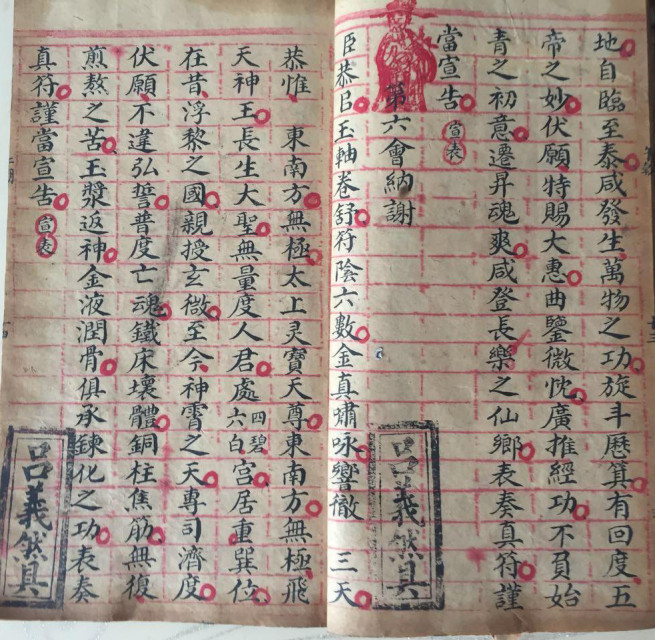 地自臨至泰咸發生萬物之功旋斗曆箕有回度五
帝之妙伏願特賜大惠曲鑒微忱廣推經功不負始
青之初意遷昇魂爽咸登長樂之仙鄉表奏真符謹
當宣告宣表
第六會納謝
臣恭启玉軸卷舒符陰六數金真嘯咏響徹 三天
恭惟 東南方無極太上灵寶天尊東南方無極飛
天神王長生大聖無量度人君處四碧六白宮居重巽位
在昔浮黎之國親授玄微至今神霄之天專司濟度
伏願不違弘誓普度亡魂鐵床壞體銅柱焦筋無復
煎熬之苦玉漿返神金液潤骨俱承鍊化之功表奏
真符謹當宣告宣表
呂義然具
呂義然具